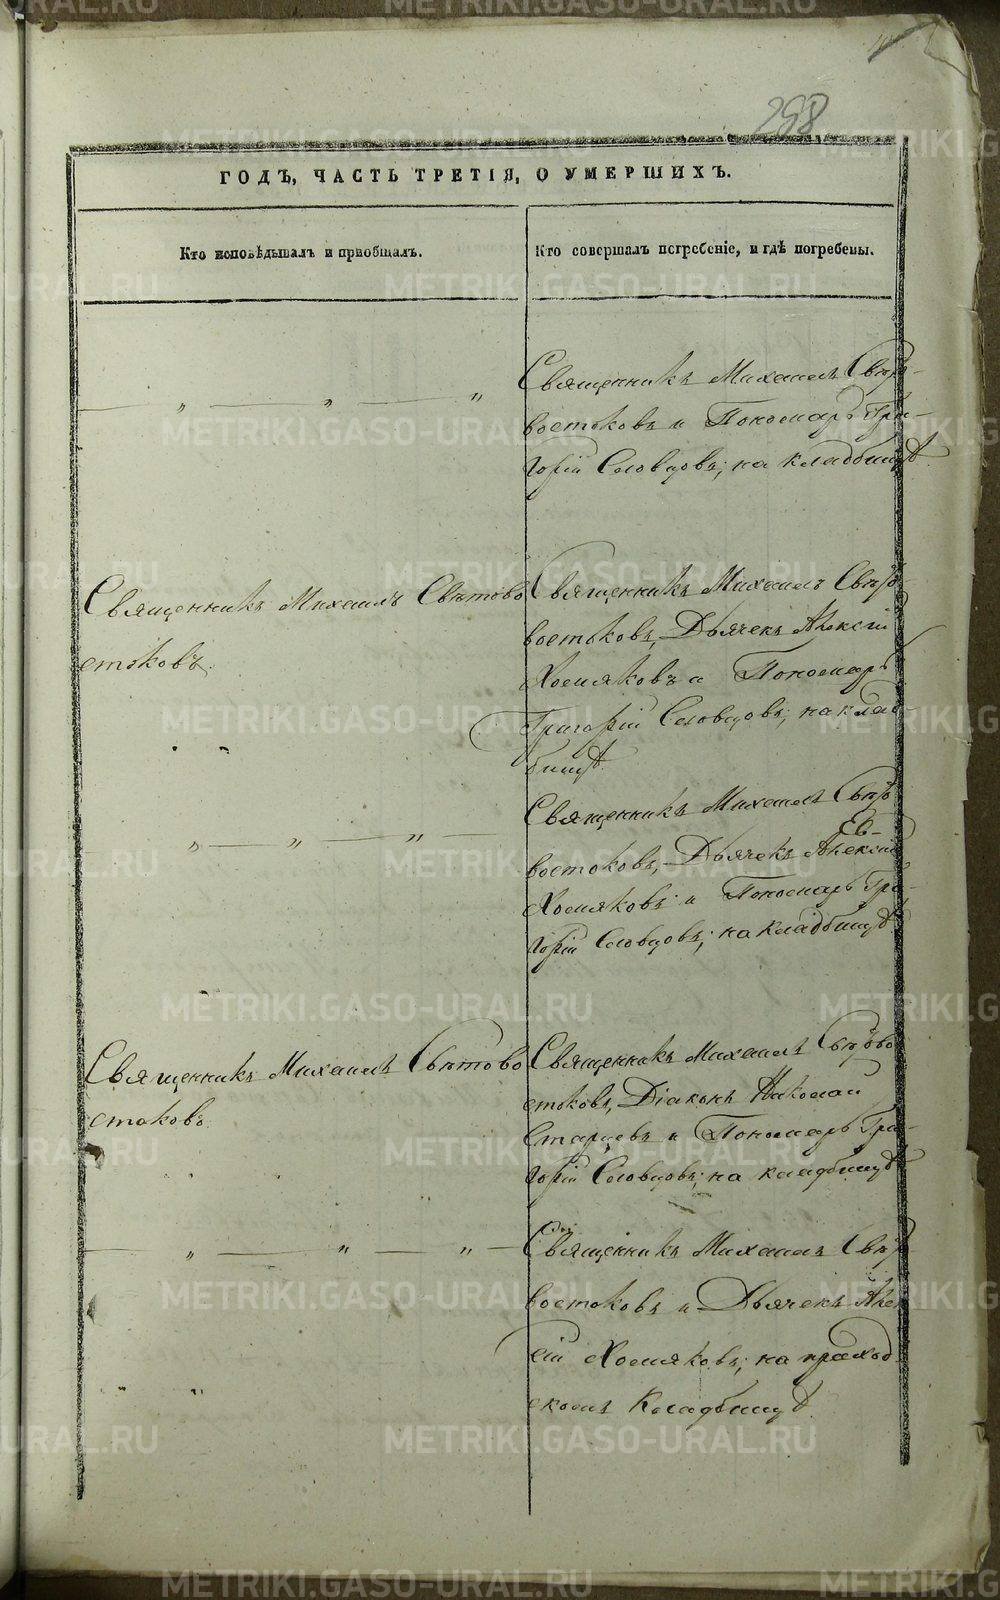 298
ГОДЪ, ЧАСТЬ ТРЕТІЯ, О УМЕРШИХЪ.
Кто исповѣдывалъ и пріобщалъ.
Кто совершалъ погребеніе, и гдѣ погребены.
— „ — „ — „
Священникъ Михаилъ Свѣто-
востоковъ и Пономарь Гри-
горій Словцовъ; на кладбищѣ
Священникъ Михаилъ Свѣтово
стоковъ.
Священникъ Михаилъ Свѣто-
востоковъ, Дьячекъ Алексій
Хомяковъ и Пономарь
Григорій Словцовъ; на клад-
бищѣ.
— „ — „ — „ —
Священникъ Михаилъ Свѣто
востоковъ, Дьячекъ Алексій
Хомяковъ и Пономарь Гри-
горій Словцовъ; на кладбищѣ
Священникъ Михаилъ Свѣтово
стоковъ.
Священникъ Михаилъ Свѣтово
стоковъ, Діаконъ Николай
Старцевъ и Пономарь Гри-
горій Словцовъ; на кладбищѣ
— „ — „ — „ —
Священникъ Михаилъ Свѣто-
востоковъ и Дьячекъ Алек
сій Хомяковъ; на приход-
скомъ Кладбищѣ.
METRIKI.GASO-URAL.RU